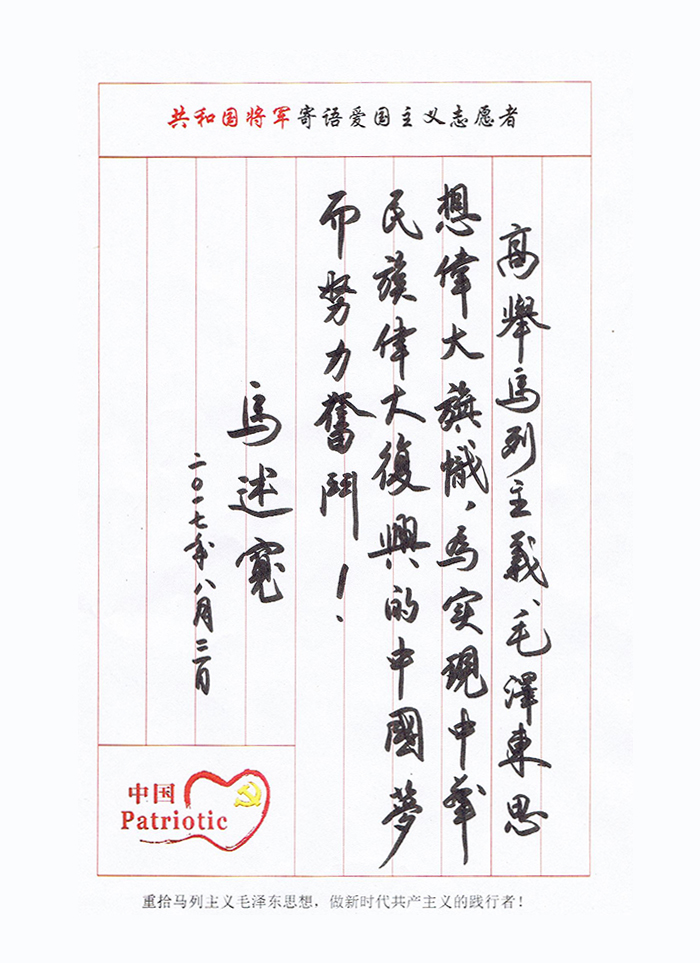 共和国将军寄语爱国主义志愿者
高舉馬列主義、毛澤東思
想偉大旗幟，為实現中華
民族偉大復興的中國夢
而努力奮鬥！
馬述寬
二〇一七年八月三日
中国
Patriotic
重拾马列主义毛泽东思想，做新时代共产主义的践行者！